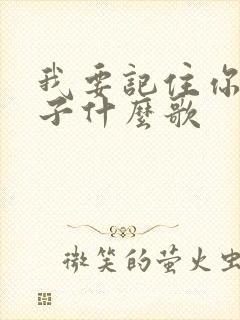 我要記住你
子什麼歌
微笑的萤火虫